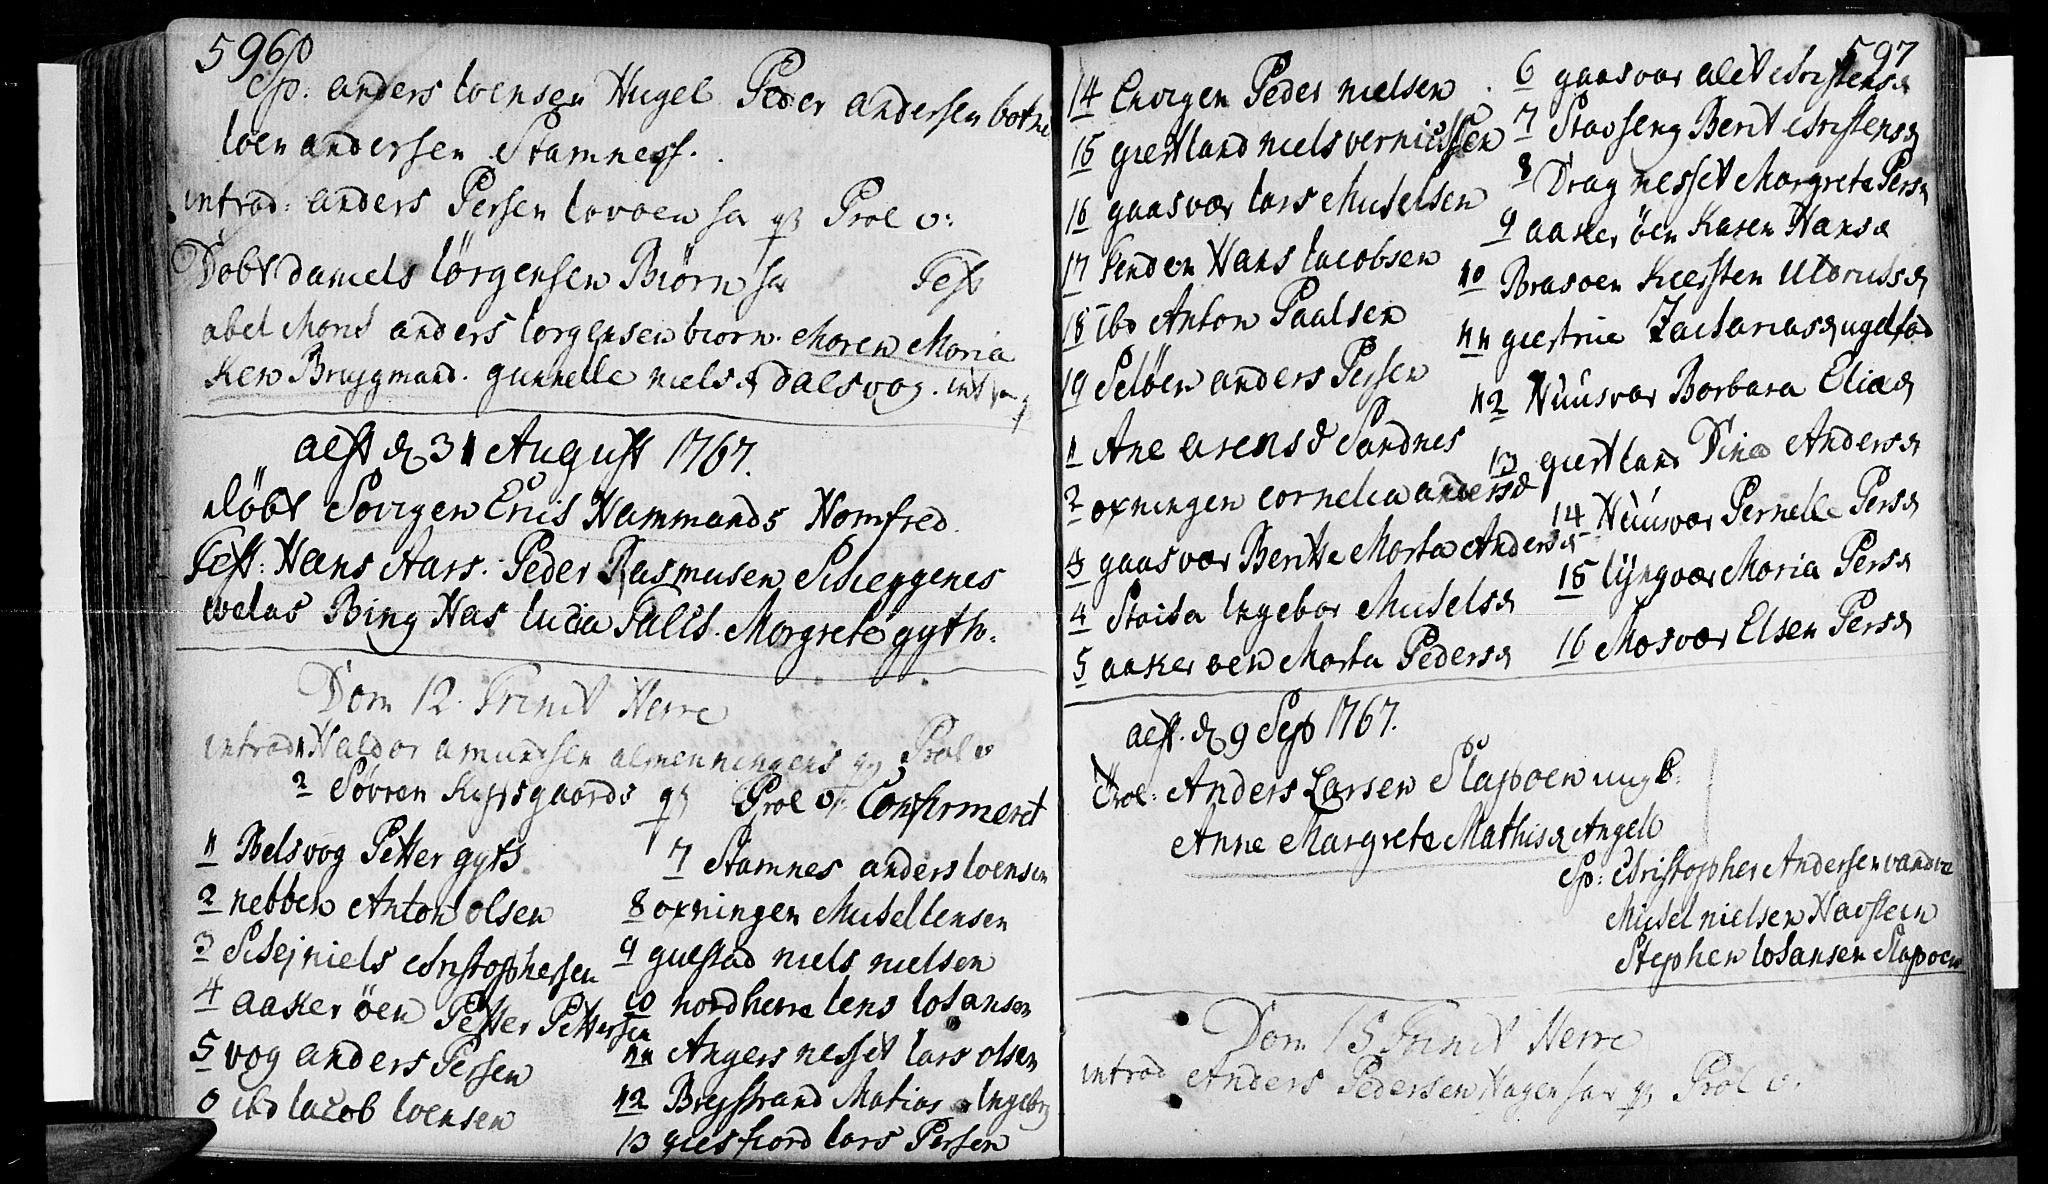 596
Sp: anders Joensen Hugel Peder andersen botn
Joen andersen Stamness.
introd: anders Persen lovoen har qz Prol v:
Døbt daniels Jörgensen Biörn har Test
abel Mons anders Jorgensen biorn. Maren Maria
Ken Bruggmand. gunnelle nielsd dalsvog. int
aest d 31 August 1767.
døbt Sovigen Erics Hammands Homfred
Test: Hans Aars. Peder Rasmusen
Bing Has lucia Falch. Margrete gyth.
Dom 12 Trinit Herre
introd 1 Haldor amundsen almenningens qz Prol v
2 Søvren qz Prol v: Confirmeret
1 Belsvog Petter gyth
2 nebben Anton olsen
3 Schej niels christophersen
4 aaker öen Petter Pettersen
5 vog anders Persen
6 ibd Jacob Joensen
7 Stamnes anders Joensen
8 oxningen Michel Jensen
9 guestad niels nielsen
10 nordherre Jens Johansen
11 Angersnesset Lars olsen
12 Brejstrand Matias Ingebr
13 giesfiord Lars Persen
597
14 Peder nielsen
15 giertland niels
16 gaasvær Lars Michelsen
17 Hans Jacobsen
18 ibd Anton Paalsen
19 Selöen anders Persen
1 Ane arensd Sandnes
2 oxningen cornelia andersd
3 gaasvær Berithe Marta Andersd
4 Ingebor Michelsd
5 aaker oen Marta Pedersd
6 gaasvær alet christensd
7 Stavseng Berit christensd
8 Dragnesset Margrete Persd
9 aaker öen Karen Hansd
10 Brasoen Kiersten
11 giertrue Zachariasd ugelstad
12 Huusvær Barbara Eliæd
13 giertland Dina Andersd
14 Huusvær Pernelle Persd
15 lyngvær Maria Persd
16 Mosvær Elsen Persd
aest. d 9 Sep 1767.
Trol: Anders Larsen Slapoen ungk:
Anne Margrete Mathisd Angell
Sp: Christopher Andersen vandve
Michel nielsen Havsteen
Stephen Johansen Slapoen
Dom 15 Trinit Herre
introd Anders Pedersen Hagen har qz Prol v.